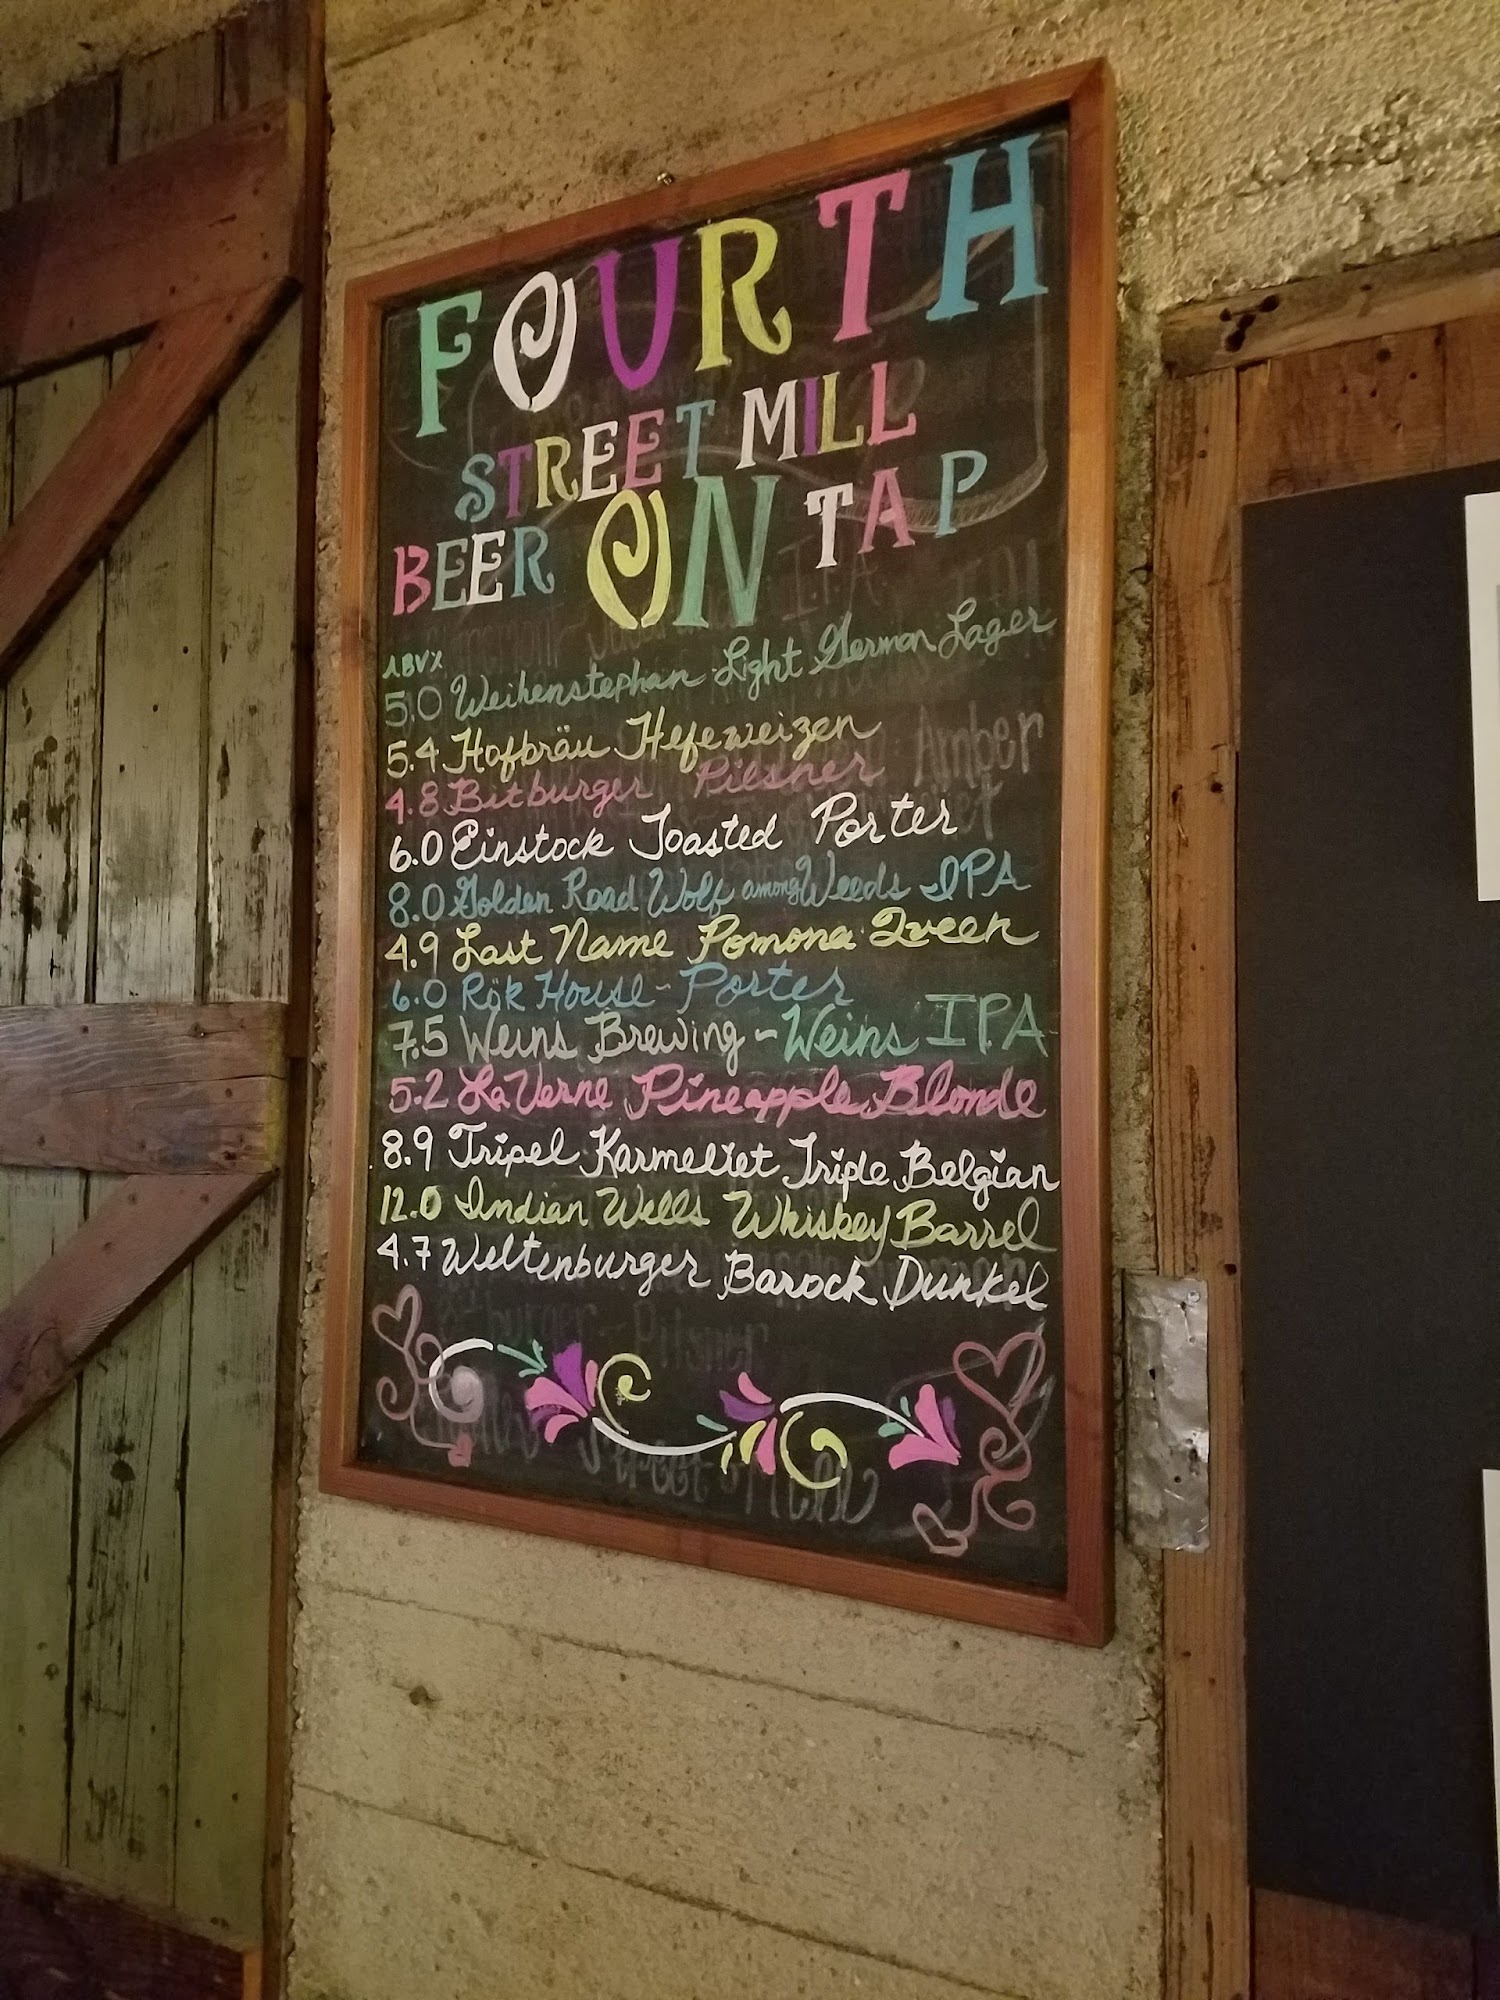 FOURTH
STREET MILL
BEER ON TAP
ABV%
5.0 Weihenstephan Light German Lager
5.4 Hofbräu Hefeweizen
4.8 Bitburger Pilsner
6.0 Einstock Toasted Porter
8.0 Golden Road Wolf among Weeds IPA
4.9 Last Name Pomona Queen
6.0 Rök House - Porter
7.5 Weins Brewing - Weins IPA
5.2 LaVerne Pineapple Blonde
8.9 Tripel Karmeliet Triple Belgian
12.0 Indian Wells Whiskey Barrel
4.7 Weltenburger Barock Dunkel